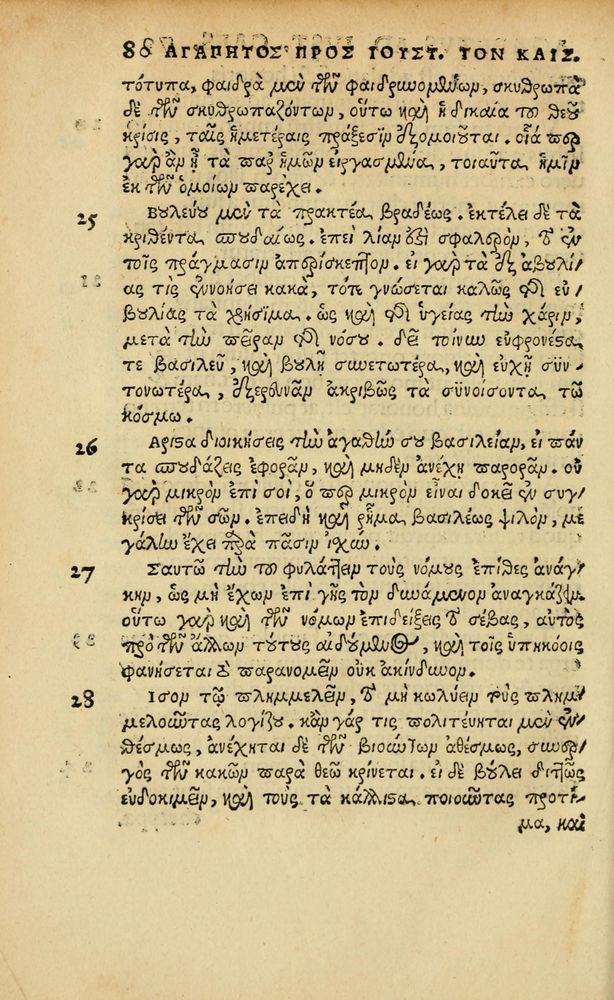 86 ΑΓΑΠΗΤΟΣ ΠΡΟΣ ΙΟΥΣΤ. ΤΟΝ ΚΑΙΣ.
τότυπα, φαιδρὰ μὲν τῶν φαιδρυνομένων, σκυθρωπὰ
δὲ τῶν σκυθρωπαζόντων, οὕτω καὶ ἡ δικαία τοῦ θεοῦ
κρίσις, ταῖς ἡμετέραις πράξεσιν ἐξομοιοῦται. οἷά περ
γὰρ ἂν ᾖ τὰ παρ' ἡμῶν εἰργασμένα, τοιαῦτα ἡμῖν
ἐκ τῶν ὁμοίων παρέχει.
25 Βουλεύου μὲν τὰ πρακτέα βραδέως. ἐκτέλει δὲ τὰ
κριθέντα σπουδαίως. ἐπεὶ λίαν ἐστὶ σφαλερὸν, τὸ ἐν
τοῖς πράγμασιν ἀπερίσκεπτον. εἰ γὰρ τὰ ἐξ ἀβουλί
ας τὶς ἐννοήσει κακὰ, τότε γνώσεται καλῶς τῆς εὐ
βουλίας τὰ χρήσιμα. ὡς καὶ τῆς ὑγείας τὴν χάριν,
μετὰ τὴν πεῖραν τῆς νόσου. δεῖ τοίνυν εὐφρονέστα
τε βασιλεῦ, καὶ βουλῇ συνετωτέρᾳ, καὶ εὐχῇ συν
τονωτέρᾳ, ἐξερευνᾶν ἀκριβῶς τὰ συνοίσοντα τῷ
κόσμῳ.
26 Αριστα διοικήσεις τὴν ἀγαθήν σου βασιλείαν, εἰ πάν
τα σπουδάζεις ἐφορᾶν, καὶ μηδὲν ἀνέχῃ παρορᾶν. οὐ
γὰρ μικρὸν ἐπὶ σοὶ, ὅ περ μικρὸν εἶναι δοκεῖ ἐν συγ
κρίσει τῶν σῶν. ἐπειδὴ καὶ ῥῆμα βασιλέως ψιλὸν, με
γάλην ἔχει παρὰ πᾶσιν ἰχύν.
27 Σαυτῷ τὴν τοῦ φυλάττειν τοὺς νόμους ἐπίθες ἀνάγ
κην, ὡς μὴ ἔχων ἐπὶ γῆς τὸν δυνάμενον ἀναγκάζειν.
οὕτω γὰρ καὶ τῶν νόμων ἐπιδείξεις τὸ σέβας, αὐτὸς
πρὸ τῶν ἄλλων τούτους αἰδούμενος, καὶ τοῖς ὑπηκόοις
φανήσεται τὸ παρανομεῖν οὐκ ἀκίνδυνον.
28 Ισον τῷ πλημμελεῖν, τὸ μὴ κωλύειν τοὺς πλημ
μελοῦντας λογίζου. κἂν γάρ τις πολιτεύηται μὲν ἐν
θέσμως, ἀνέχηται δὲ τῶν βιούντων ἀθέσμως, συνερ
γὸς τῶν κακῶν παρὰ θεῷ κρίνεται. εἰ δὲ βούλει διττῶς
εὐδοκιμεῖν, καὶ τοὺς τὰ κάλλιστα ποιοῦντας προτί
μα, καὶ